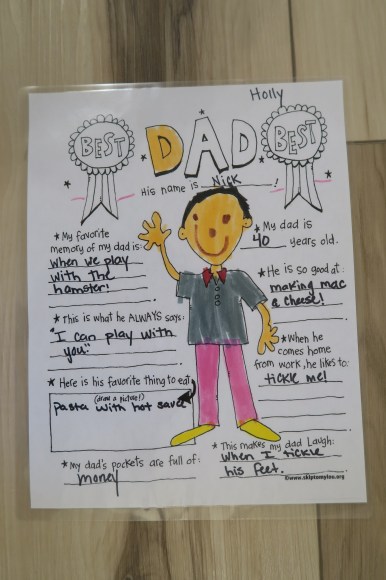 Holly
BEST DAD BEST
His name is Nick !
★My favorite
memory of my dad is:
when we play
with the
hamster!
★My dad is
40 years old.
★He is so good at:
making mac
a cheese!
★This is what he ALWAYS says:
"I can play with
you."
★When he
comes home
from work, he likes to:
tickle me!
★Here is his favorite thing to eat
(draw a picture!)
Pasta with hot sauce
★This makes my dad Laugh:
when I tickle
his feet.
★My dad's pockets are full of:
money
©www.skiptomylou.org